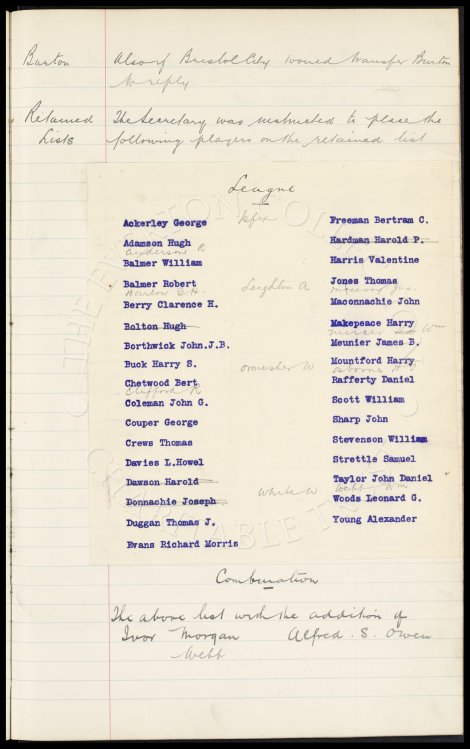 Burton
Also of Bristol City transfer Burton
No reply
Retained
Lists
The Secretary was instructed to place the
following players on the retained list
League
Ackerley George
Freeman Bertram C.
Adamson Hugh
Hardman Harold P.
Anderson R
Balmer William
Harris Valentine
Balmer Robert
Leighton A
Jones Thomas
Berry Clarence H.
Maconnachie John
Bolton Hugh
Makepeace Harry
Borthwick John.J.B.
Meunier James B.
Buck Harry S.
Ormisher W
Mountford Harry
Osborne H
Chetwood Bert
Rafferty Daniel
Clifford R
Coleman John G.
Scott William
Couper George
Sharp John
Crews Thomas
Stevenson William
Davies L.Howel
Strettle Samuel
Dawson Harold
Taylor John Daniel
White W
Webb Wm
Donnachie Joseph
Woods Leonard G.
Duggan Thomas J.
Young Alexander
Evans Richard Morris
Combination
The above list with the addition of
Ivor Morgan Alfred. S. Owen
Webb
THE EVERTON COLLECTION
CHARITABLE TRUST